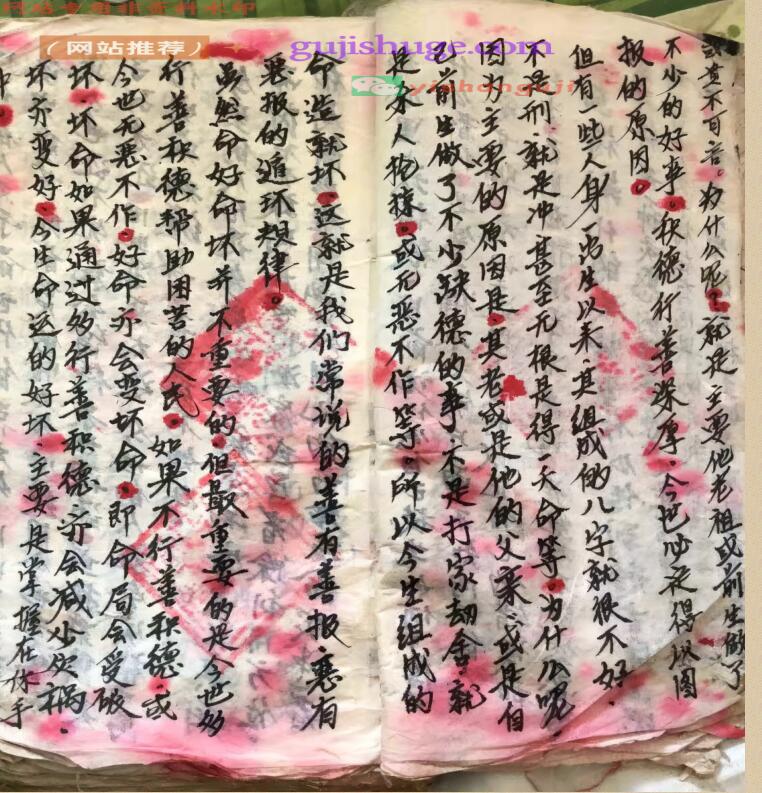 网站专用非资料水印
（网站推荐）
gujishuge.com
yishanguji
或贵不可言。为什么呢？就是主要他老祖或前生做了
不少的好事。积德行善深厚。今世必定得以图
报的原因。
但有一些人身一出生以来.其组成的八字就很不好.
不是刑就是冲甚至无根是得一夭命等。为什么呢
因为主要的原因是.其老或是他的父亲.或是自
己前生做了不少缺德的事.不是打家劫舍就
是杀人抢掠.或无恶不作等.所以今生组成的
命造就坏.这就是我们常说的善有善报.恶有
恶报的追环规律。
虽然命好命坏并不重要的.但最重要的是今世多
行善积德帮助困苦的人民.如果不行善积德.或
今世无恶不作.好命亦会变坏命.即命局会受破
坏.坏命如果通过多行善积德.亦会减少灾祸.
坏亦变好.今生命运的好坏.主要是掌握在你手
中.